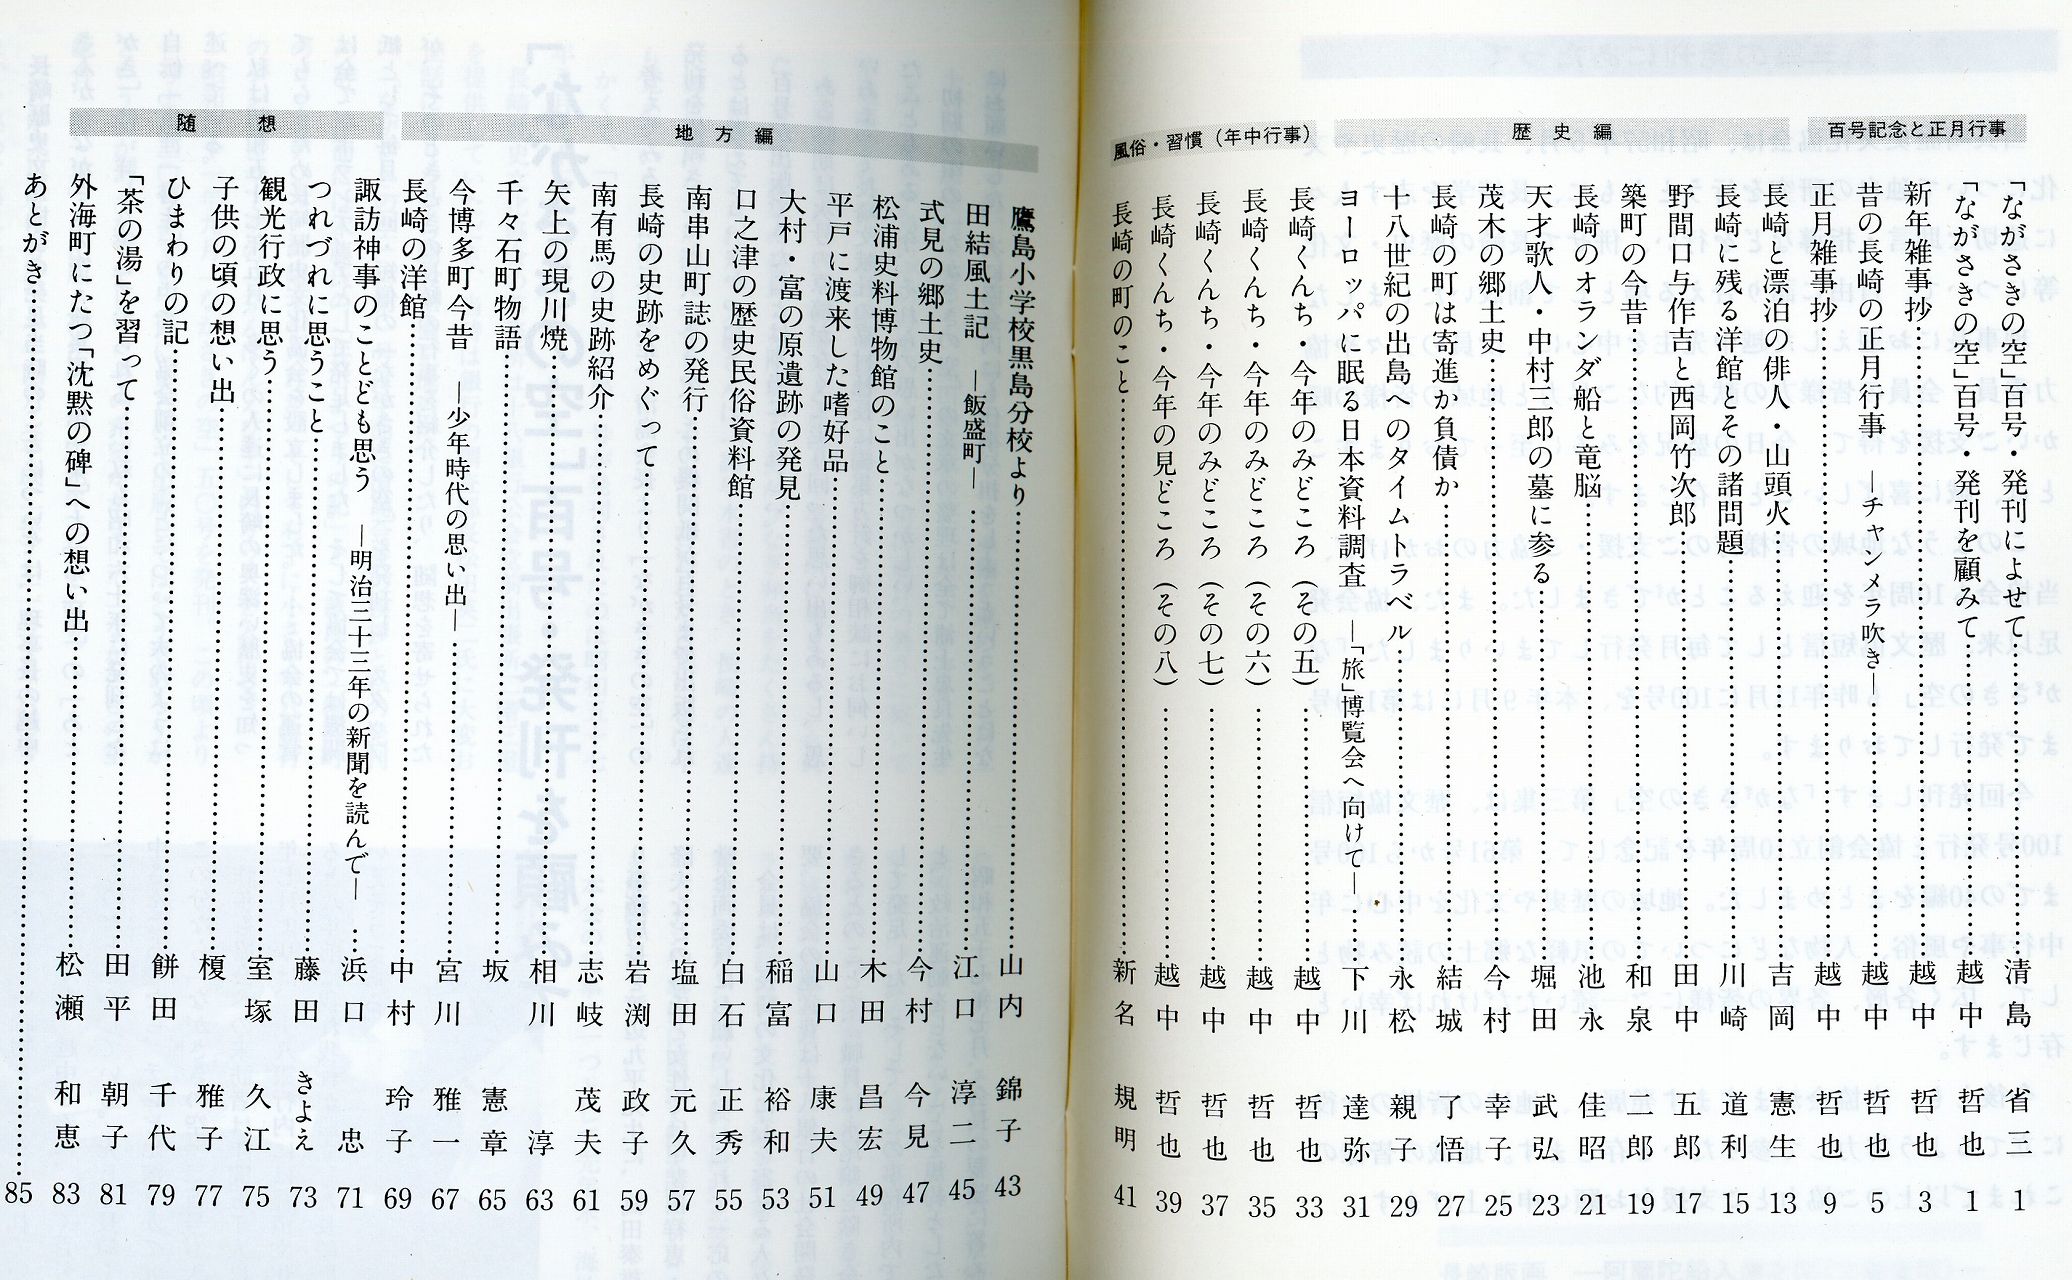 百号記念と正月行事
「ながさきの空」百号・発刊によせて 清島 省三 1
「ながさきの空」百号・発刊を顧みて 越中 哲也 1
新年雑事抄 越中 哲也 3
昔の長崎の正月行事 ―チャンメラ吹き― 越中 哲也 5
正月雑事抄 越中 哲也 9
歴史編
長崎と漂泊の俳人・山頭火 吉岡 憲生 13
長崎に残る洋館とその諸問題 川崎 道利 15
野間口与作吉と西岡竹次郎 田中 五郎 17
築町の今昔 和泉 二郎 19
長崎のオランダ船と竜脳 池永 佳昭 21
天才歌人・中村三郎の墓に参る 堀田 武弘 23
茂木の郷土史 今村 幸子 25
長崎の町は寄進か負債か 結城 了悟 27
十八世紀の出島へのタイムトラベル 永松 親子 29
ヨーロッパに眠る日本資料調査 ―「旅」博覧会へ向けて― 下川 達弥 31
風俗・習慣（年中行事）
長崎くんち・今年のみどころ（その五） 越中 哲也 33
長崎くんち・今年のみどころ（その六） 越中 哲也 35
長崎くんち・今年のみどころ（その七） 越中 哲也 37
長崎くんち・今年の見どころ（その八） 越中 哲也 39
長崎の町のこと 新名 規明 41
地方編
鷹島小学校黒島分校より 山内 錦子 43
田結風土記 ―飯盛町― 江口 淳二 45
式見の郷土史 今村 今見 47
松浦史料博物館のこと 木田 昌宏 49
平戸に渡来した嗜好品 山口 康夫 51
大村・富の原遺跡の発見 稲富 裕和 53
口之津の歴史民俗資料館 白石 正秀 55
南串山町誌の発行 塩田 元久 57
長崎の史跡をめぐって 岩渕 政子 59
南有馬の史跡紹介 志岐 茂夫 61
矢上の現川焼 相川 淳 63
千々石町物語 坂 憲章 65
今博多町今昔 ―少年時代の思い出― 宮川 雅一 67
長崎の洋館 中村 玲子 69
随想
諏訪神事のことども思う ―明治三十三年の新聞を読んで― 浜口 忠 71
つれづれに思うこと 藤田 きよえ 73
観光行政に思う 室塚 久江 75
子供の頃の想い出 榎 雅子 77
ひまわりの記 餅田 千代 79
「茶の湯」を習って 田平 朝子 81
外海町にたつ「沈黙の碑」への想い出 松瀬 和恵 83
あとがき 85